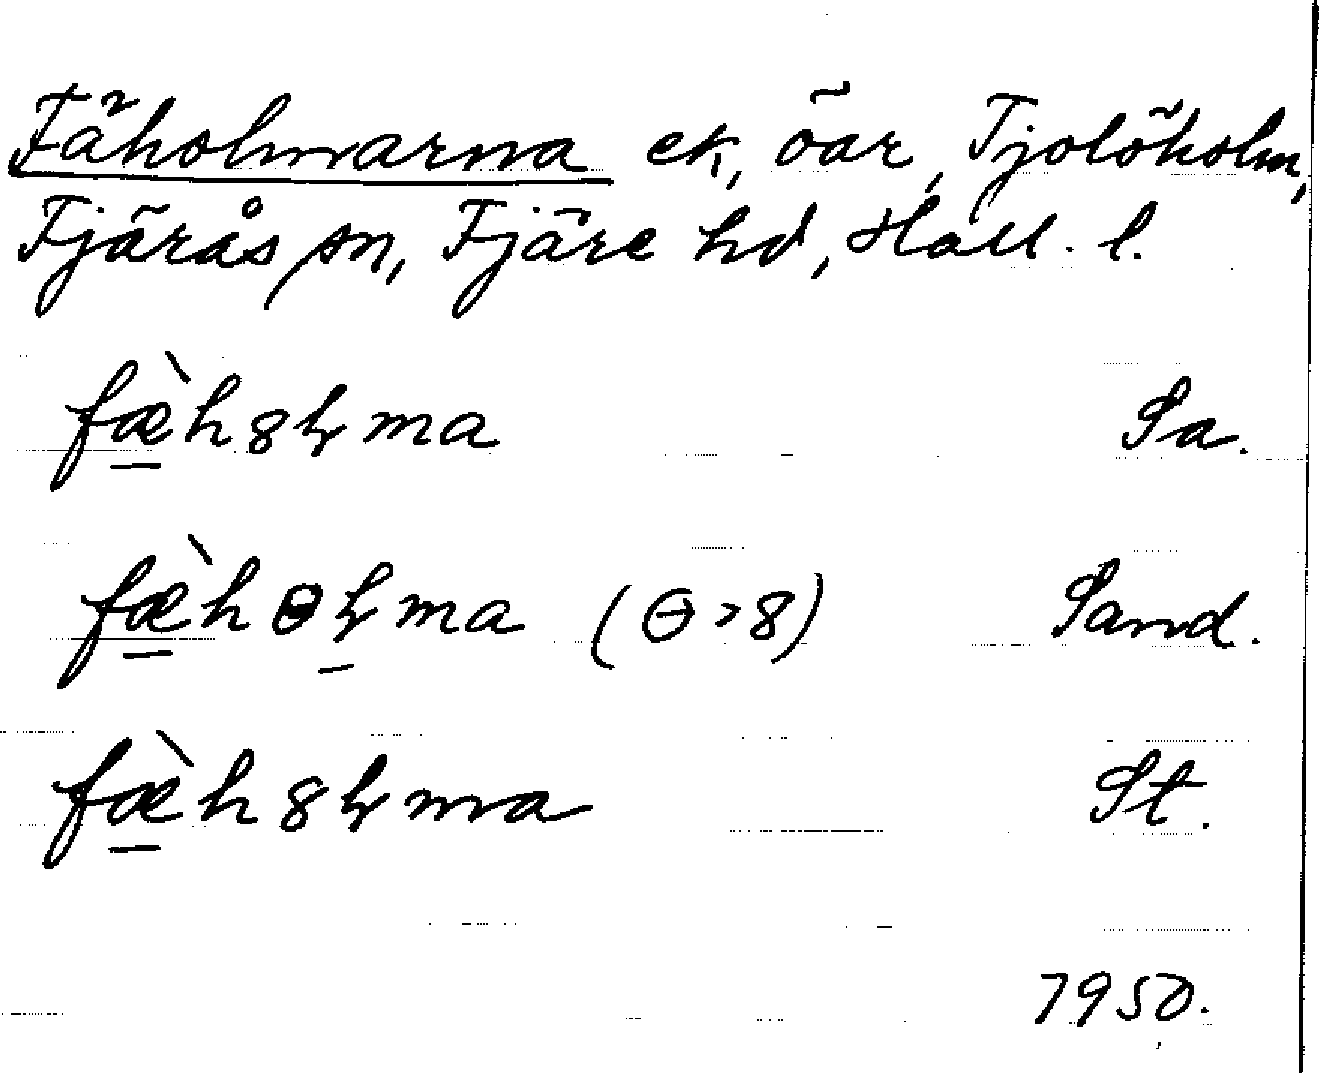 Fäholmarna ek, öar, Tjolöholm,
Fjärås sn, Fjäre hd, Hall. l.
fæ̀h8ɮma Sa.
fæ̀hɵɮma (ɵ>8) Sand.
fæ̀h8ɮma St.
1950.